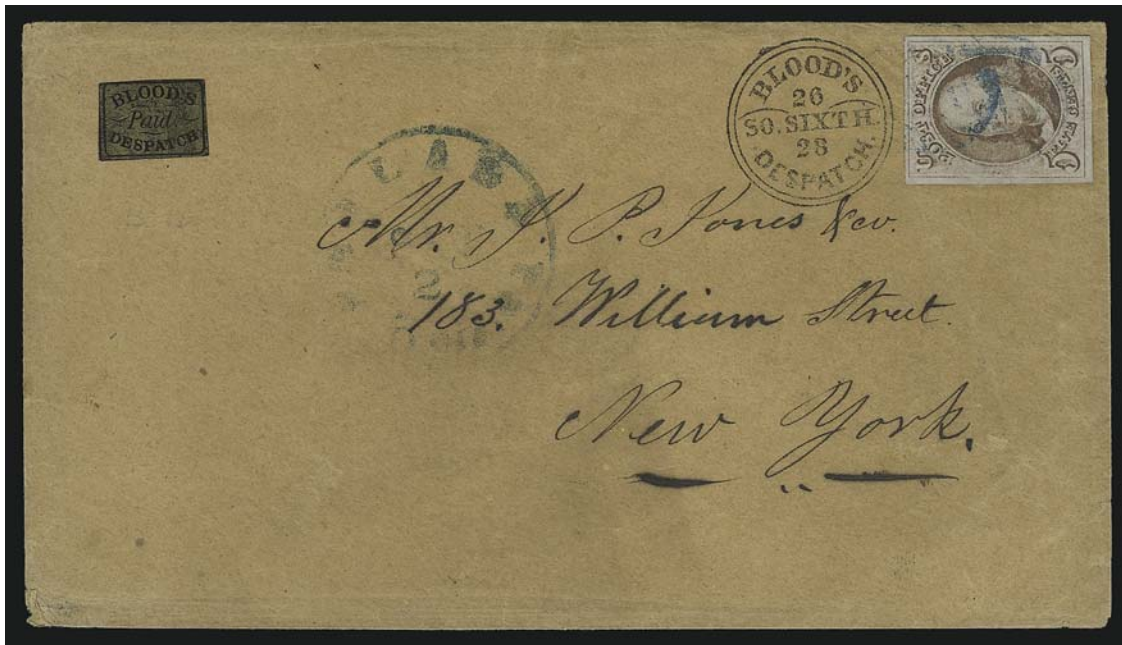 BLOOD'S
Paid
DESPATCH
BLOOD'S
26
SO. SIXTH.
28
DESPATCH.
5 5
POST OFFICE
Mr. J. P. Jones & co.
183. William Street.
New York.